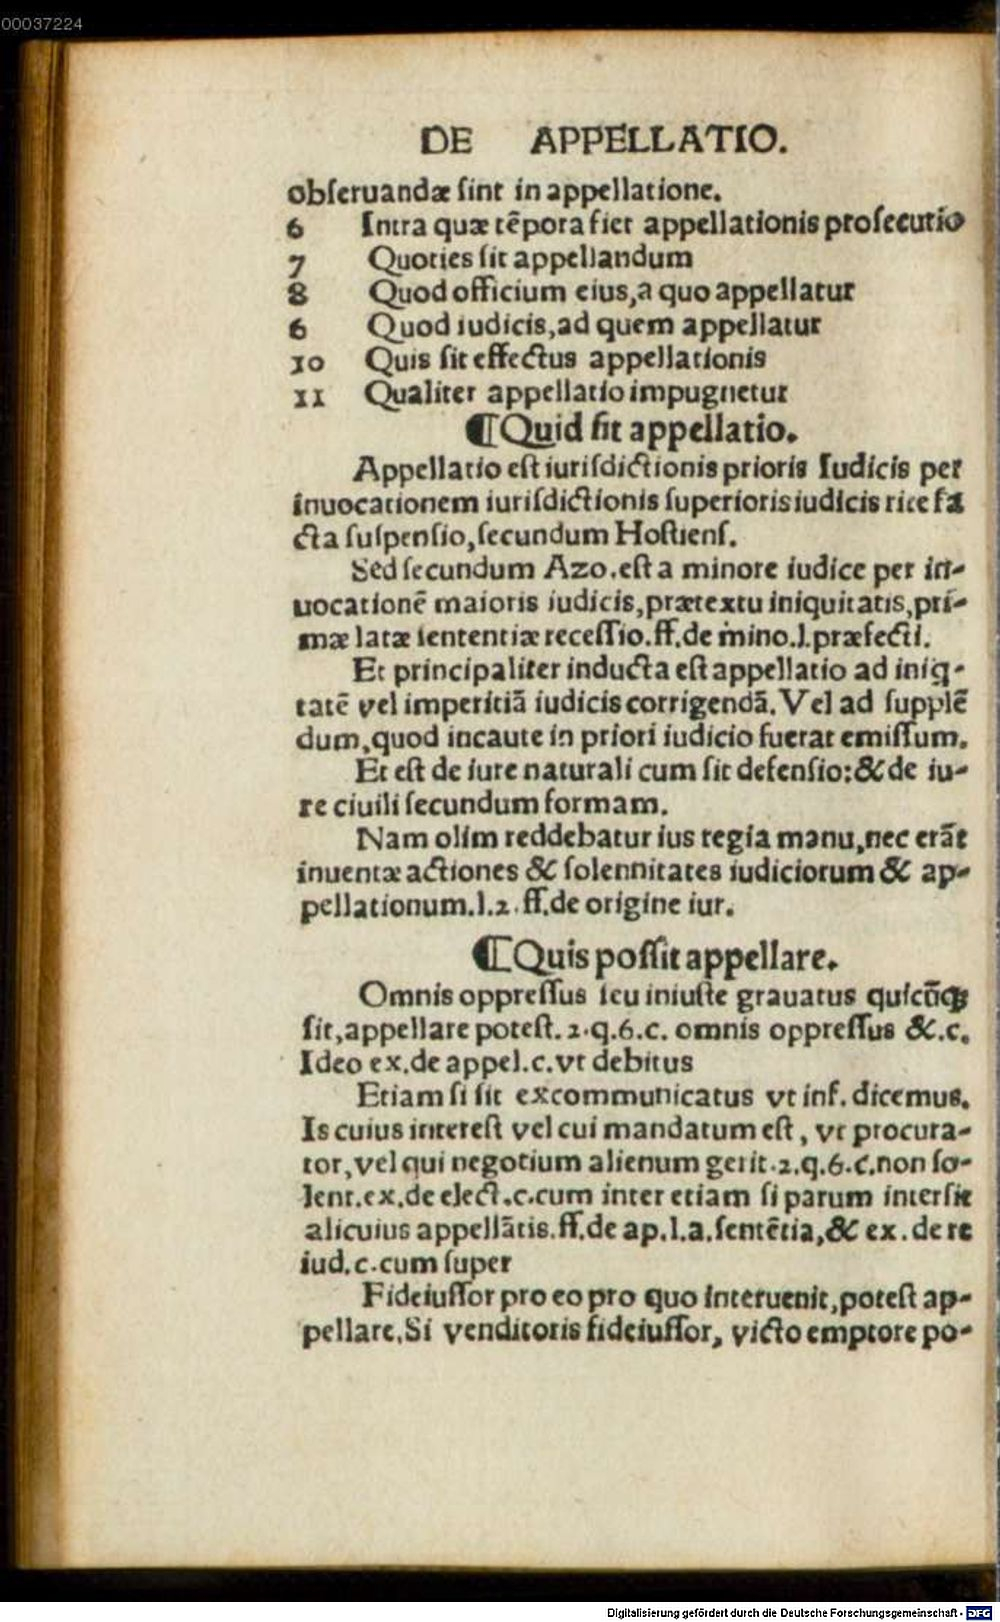 00037224
DE APPELLATIO.
obſeruandæ ſint in appellatione.
6 Intra quæ tẽpora fiet appellationis proſecutio
7 Quoties ſit appellandum
8 Quod officium eius,a quo appellatur
6 Quod iudicis,ad quem appellatur
10 Quis ſit effectus appellationis
11 Qualiter appellatio impugnetur
¶Quid ſit appellatio.
Appellatio eſt iuriſdictionis prioris Iudicis per
inuocationem iuriſdictionis ſuperioris iudicis rite fa
cta ſuſpenſio,ſecundum Hoſtienſ.
Sed ſecundum Azo.eſt a minore iudice per in-
uocationẽ maioris iudicis,prætextu iniquitatis,pri-
mæ latæ ſententiæ receſſio.ff.de mino.l.præfecti.
Et principaliter inducta eſt appellatio ad iniq-
tatẽ vel imperitiã iudicis corrigendã.Vel ad ſupplẽ
dum,quod incaute in priori iudicio fuerat emiſſum.
Et eſt de iure naturali cum ſit defenſio:& de iu-
re ciuili ſecundum formam.
Nam olim reddebatur ius regia manu,nec erãt
inuentæ actiones & ſolennitates iudiciorum & ap-
pellationum.l.2.ff.de origine iur.
¶Quis poſſit appellare.
Omnis oppreſſus ſeu iniuſte grauatus quicũqꝫ
ſit,appellare poteſt.2.q.6.c. omnis oppreſſus &.c.
Ideo ex.de appel.c.vt debitus
Etiam ſi ſit excommunicatus vt inf. dicemus.
Is cuius intereſt vel cui mandatum eſt, vt procura-
tor,vel qui negotium alienum gerit.2.q.6.c.non ſo-
lent.ex.de elect.c.cum inter etiam ſi parum interſit
alicuius appellãtis.ff.de ap.l.a.ſentẽtia,& ex.de re
iud.c.cum ſuper
Fideiuſſor pro eo pro quo interuenit,poteſt ap-
pellare.Si venditoris fideiuſſor, victo emptore po-
Digitalisierung gefördert durch die Deutsche Forschungsgemeinschaft - DFG